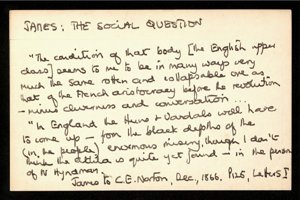 JAMES: THE SOCIAL QUESTION
"The condition of that body [the English upper
class] seems to me to be in many ways very
much the same rotten and collapsable one as
that of the French aristocracy before the revolution
- minus cleverness and conversation...
"In England the Huns & Vandals will have
to come up - from the black depths of the
(in the people) enormous misery, though I don't
think the Attila is quite yet found - in the person
of Mr Hyndman."
James to C.E. Norton, Dec., 1866. P125, Letters I